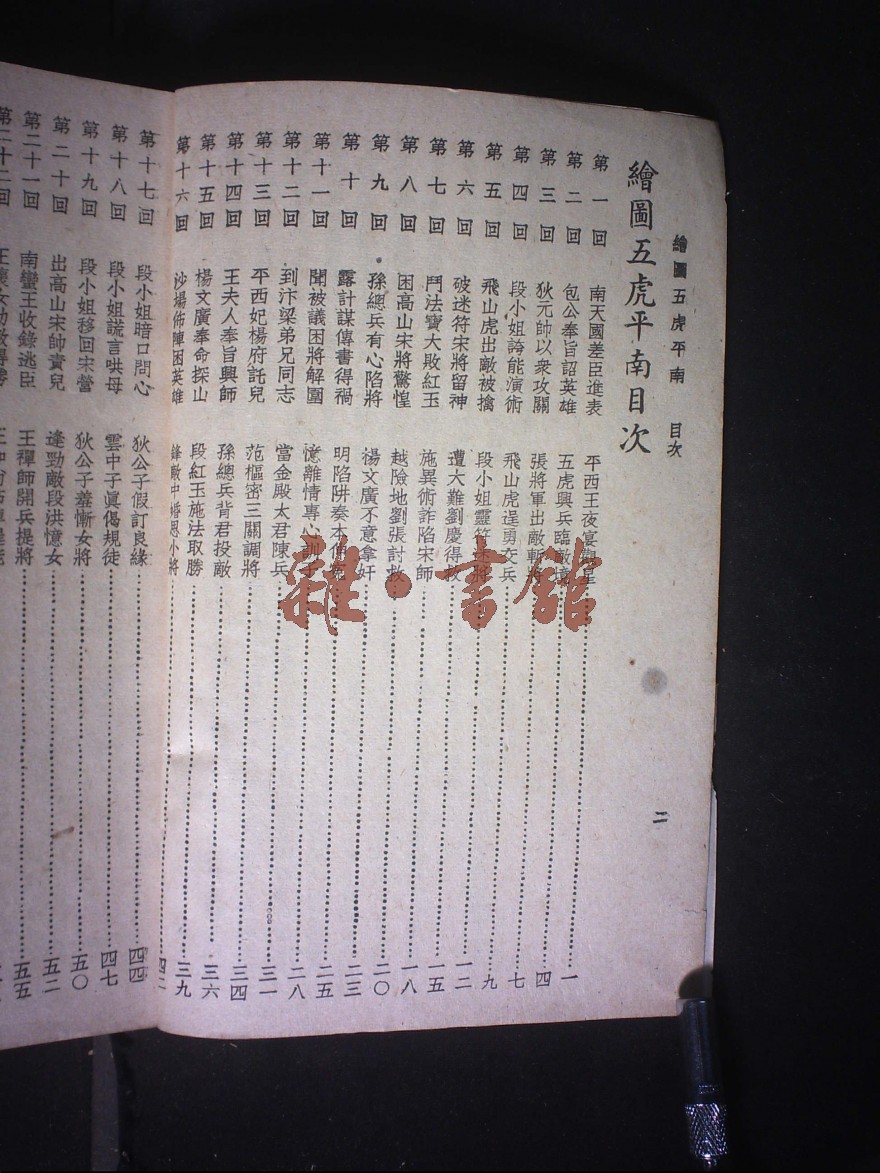 繪圖五虎平南 目次 二
繪圖五虎平南目次
第一回 南天國差臣進表 平西王夜宴觀星 一
第二回 包公奉旨詔英雄 五虎興兵臨敵境 四
第三回 狄元帥以衆攻關 張將軍出敵斬將 七
第四回 段小姐誇能演術 飛山虎逞勇交兵 九
第五回 飛山虎出敵被擒 段小姐靈符迷將 一二
第六回 破迷符宋將留神 遭大難劉慶得救 一五
第七回 鬥法寶大敗紅玉 施異術詐陷宋師 一八
第八回 困高山宋將驚惶 越險地劉張討救 二〇
第九回 孫總兵有心陷將 楊文廣不意拿奸 二三
第十回 露計謀傳書得禍 明陷阱奏本 二五
第十一回 聞被議困將解圍 憶離情專心訓子 二八
第十二回 到汴梁弟兄同志 當金殿太君陳兵 三一
第十三回 平西妃楊府託兒 范樞密三關調將 三四
第十四回 王夫人奉旨興師 孫總兵背君投敵 三六
第十五回 楊文廣奉命探山 段紅玉施法取勝 三九
第十六回 沙場佈陣困英雄 敵中婚思小將 四二
第十七回 段小姐暗口問心 狄公子假訂良緣 四四
第十八回 段小姐謊言哄母 雲中子眞傷規徒 四七
第十九回 段小姐移回宋營 狄公子羞慚女將 五〇
第二十回 出高山宋帥責兒 逢勁敵段洪憶女 五二
第二十一回 南蠻王收錄逃臣 王禪師開兵提將 五五
第二十二回
雜·書館